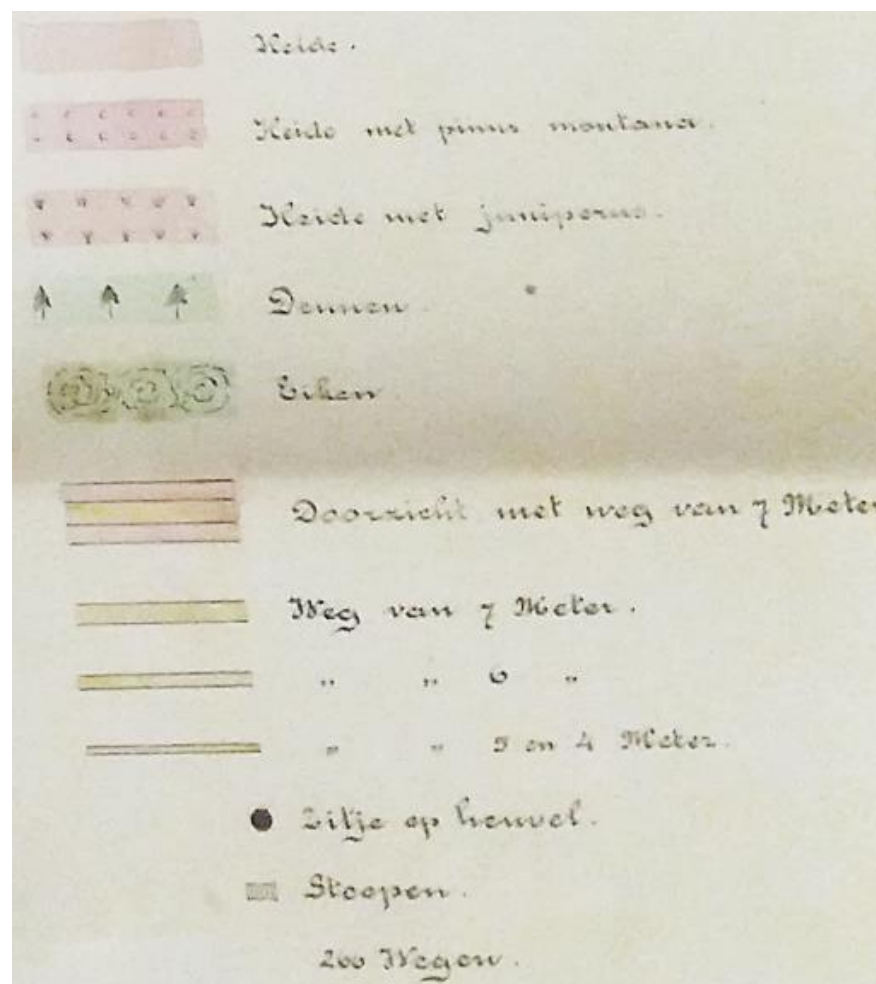 Heide.
Heide met pinus montana.
Heide met juniperus.
Dennen.
Eiken.
Doorzicht met weg van 7 Meter
Weg van 7 Meter.
" " 6 "
" " 5 en 4 Meter.
Zitje op heuvel.
Stoepen.
200 Wegen.